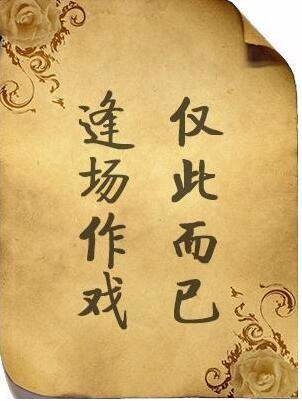 逢场作戏
仅此而已